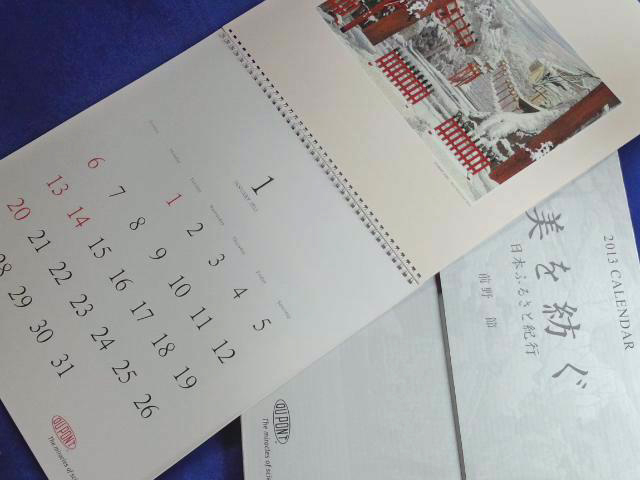 1
JANUARY 2013
Sunday Monday Tuesday Wednesday Thursday Friday Saturday
1 2 3 4 5
6 7 8 9 10 11 12
13 14 15 16 17 18 19
20 21 22 23 24 25 26
28 29 30 31
DUPONT
The miracles of scie
2013 CALENDAR
美を紡ぐ
日本ふるさと紀行
前野 節
DUPONT
The miracles of scie